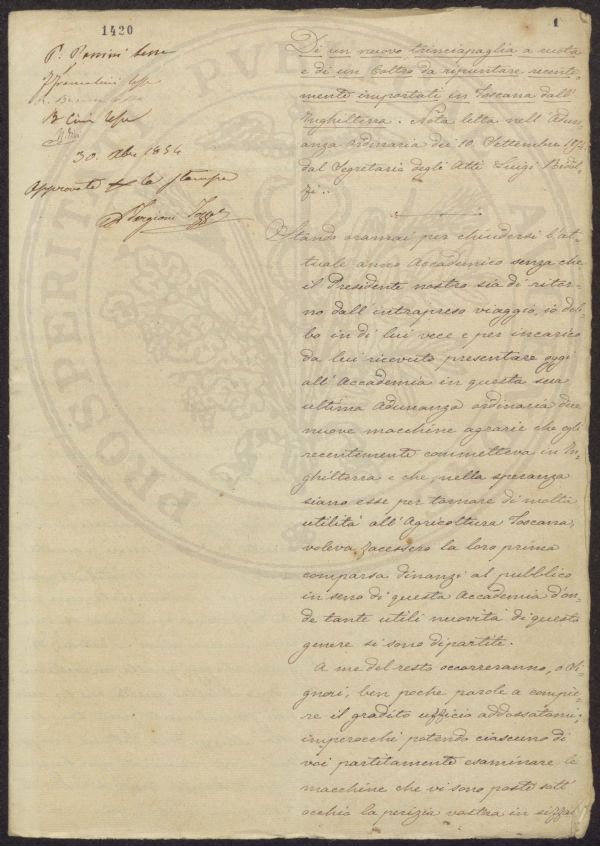 1420
1
30. Xbre 1854
Approvata per la stampa
Di un nuovo trinciapaglia a ruota
e di un Coltro da ripuntare recente-
mente importati in Toscana dall'
Inghilterra. Nota letta nell'Adu-
nanza ordinaria dei 10. Settembre 1854.
dal Segretario degli Atti Luigi
Stando oramai per chiudersi l'at-
tuale anno Accademico senza che
il Presidente nostro sia di ritor-
no dall'intrapreso viaggio, io deb-
bo in di lui vece e per incarico
da lui ricevuto presentare oggi
all'Accademia in questa sua
ultima Adunanza ordinaria due
nuove macchine agrarie che egli
recentemente commetteva in In-
ghilterra e che, nella speranza
siano esse per tornare di molta
utilità all'Agricoltura Toscana,
voleva facessero la loro prima
comparsa dinanzi al pubblico
in seno di questa Accademia d'on-
de tante utili nuovità di questo
genere si sono dipartite.
A me del resto occorreranno, o Si-
gnori, ben poche parole a compie-
re il gradito uffizio addossatomi;
imperocchè potendo ciascuno di
voi partitamente esaminare le
macchine che vi sono poste sott'
occhio la perizia vostra in
PROSPERITATI PUBLICAE